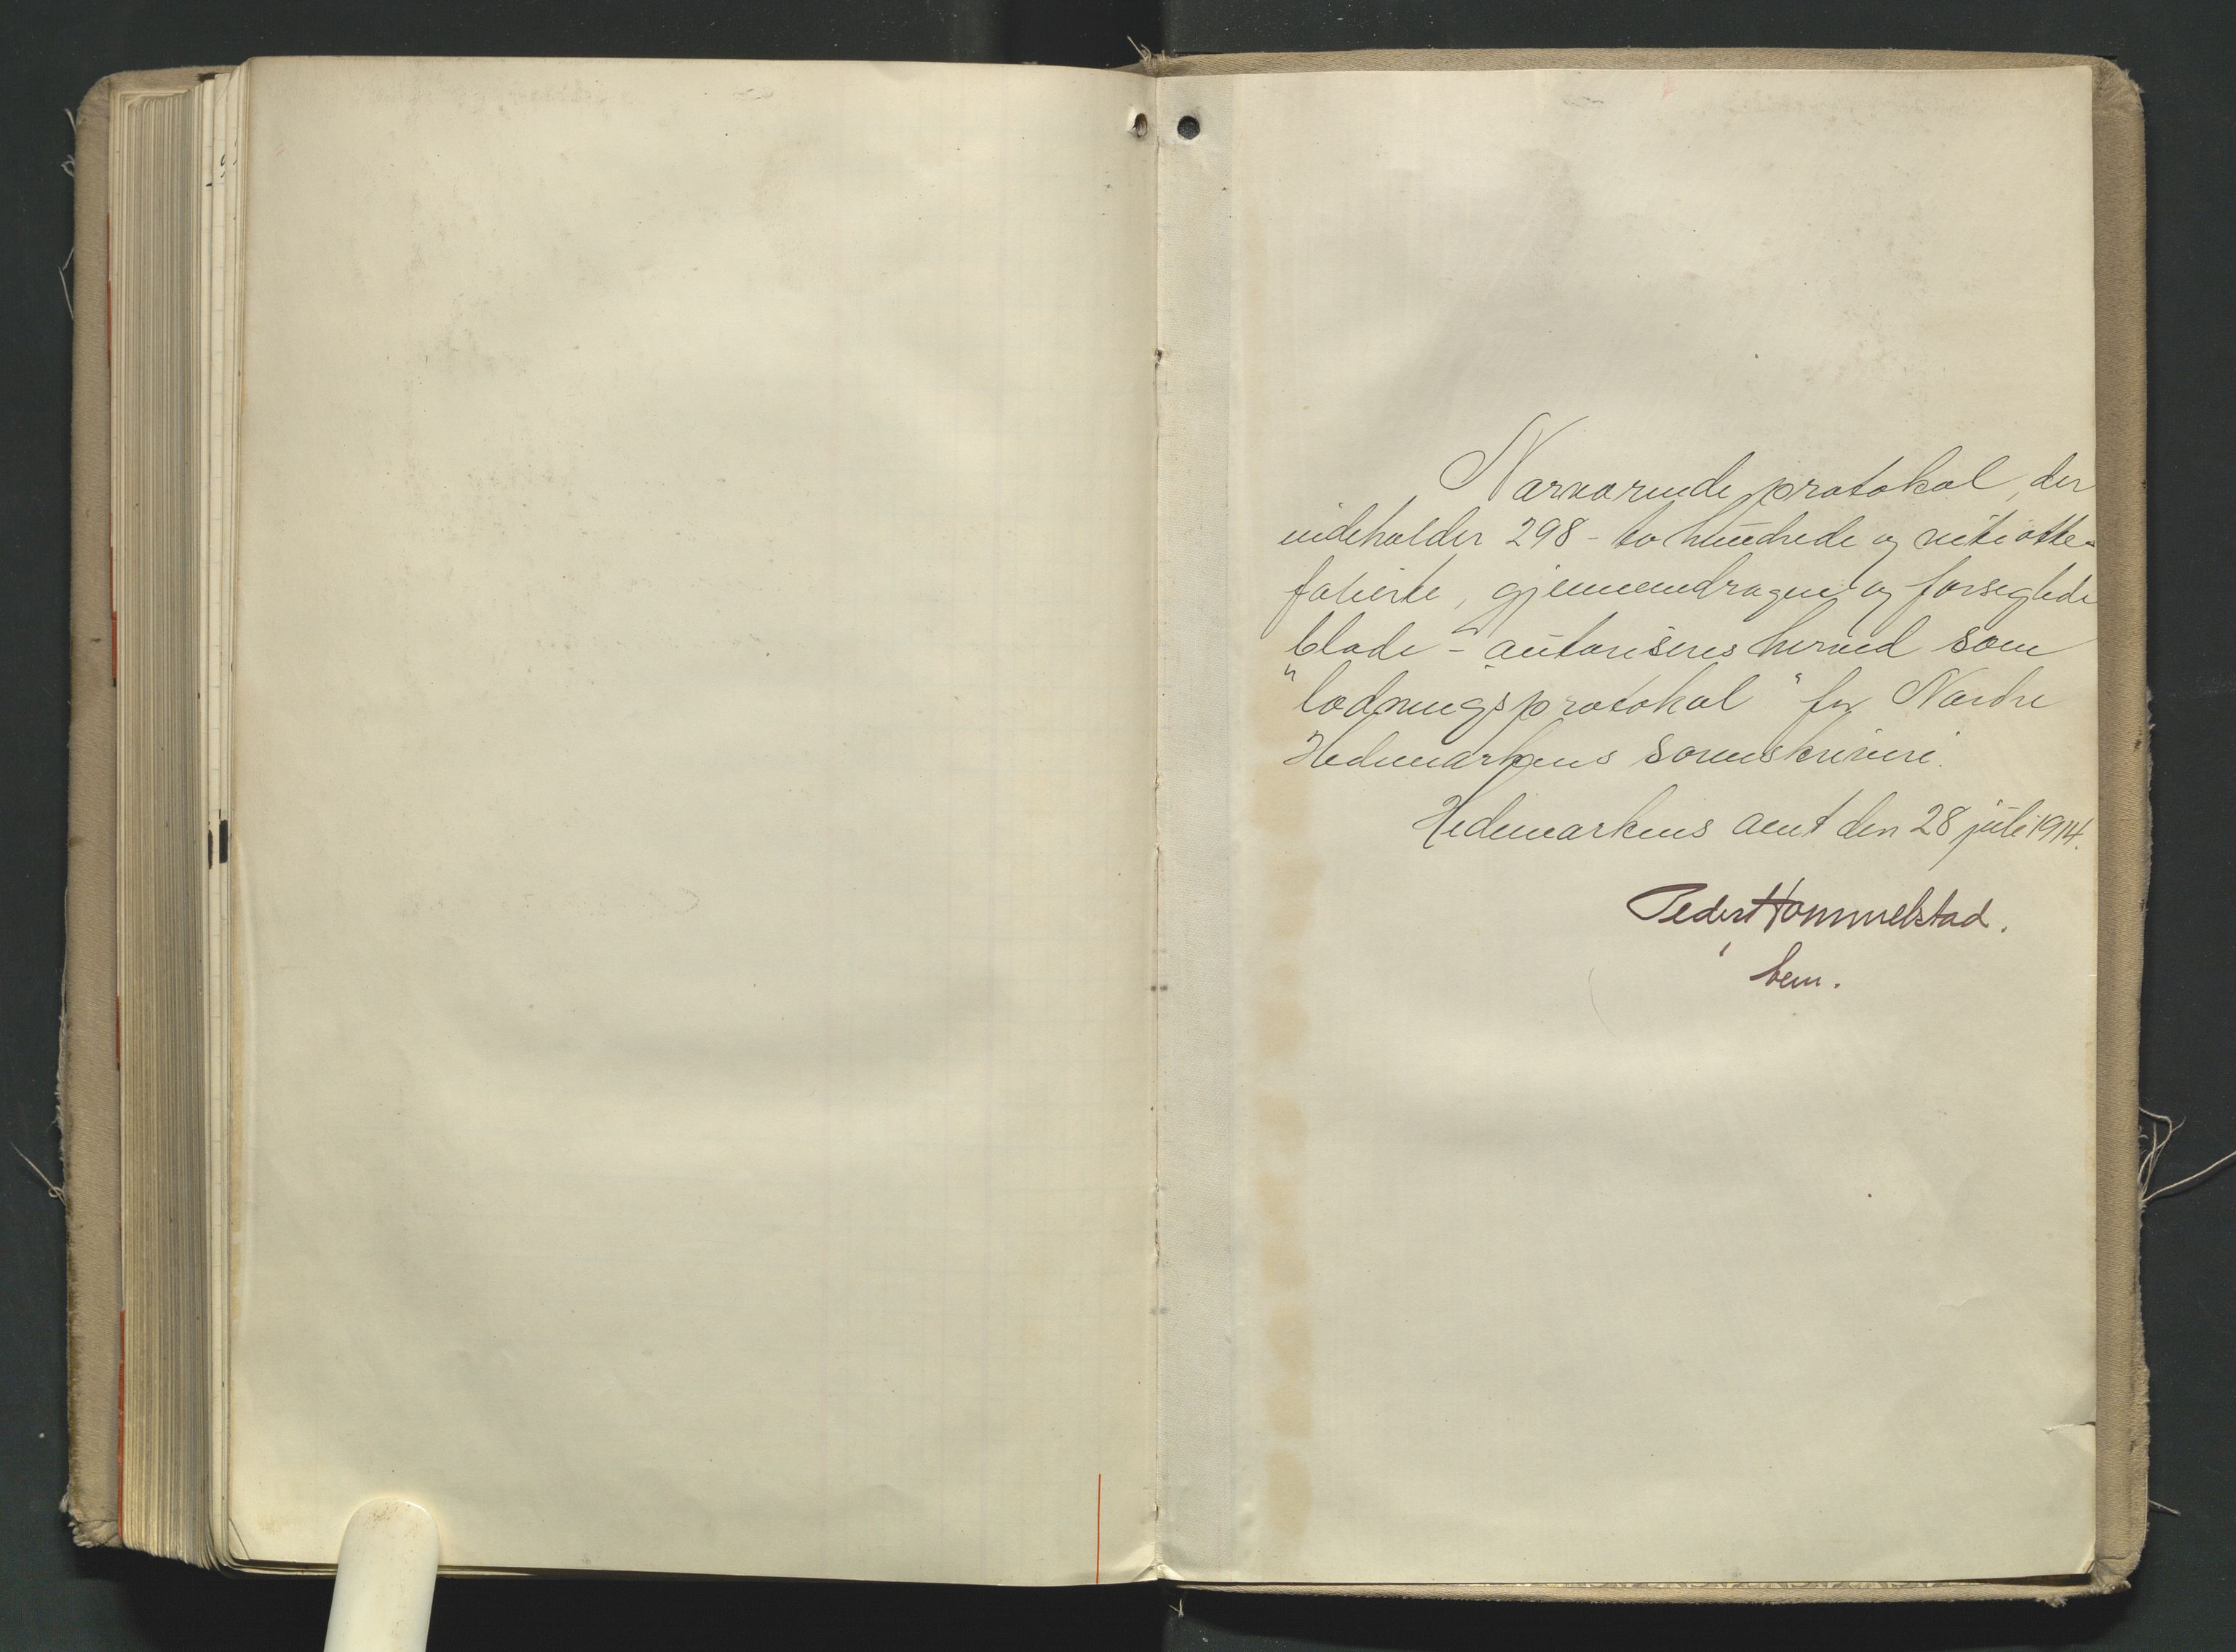 Nærværende protokol, der
indeholder 298 - to hundrede og nitiotte -
folierte, gjennemdragne og forseglede
blade - autoriseres herved som
"lodningsprotokol" for Nordre
Hedemarkens sorenskriveri.
Hedemarkens amt den 28 juli 1914.
Peder Hommelstad.
bem.